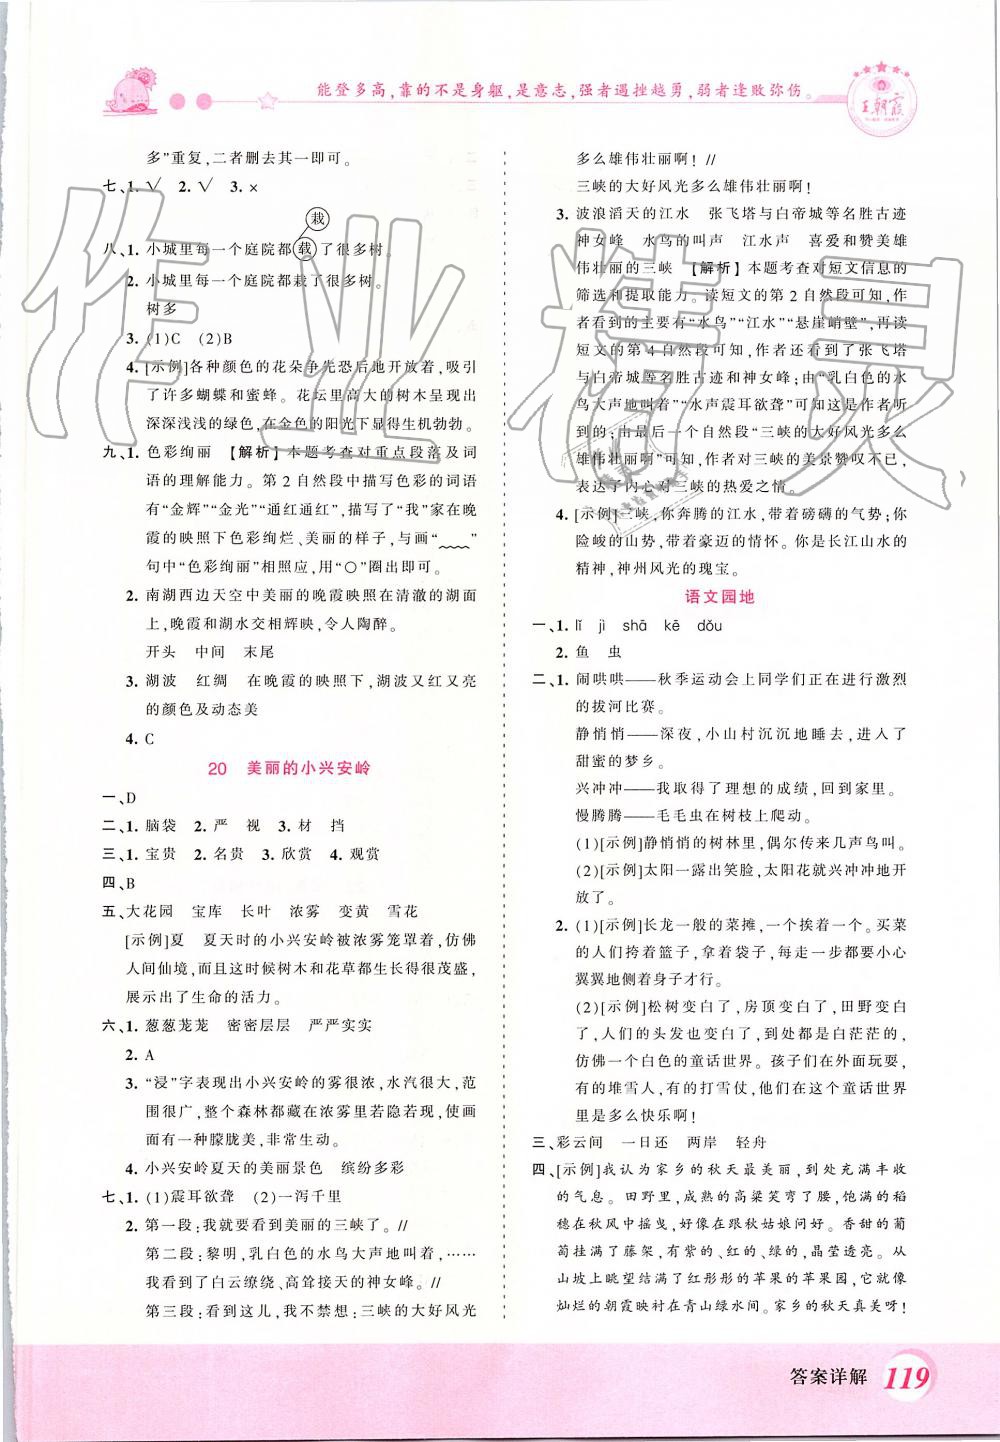 能登多高,靠的不是身躯,是意志,强者遇挫越勇,弱者逢败弥伤。
王朝霞
多”重复,二者删去其一即可。
七、1. √ 2. √ 3. ×
栽
八、1. 小城里每一个庭院都载了很多树。
2. 小城里每一个庭院都栽了很多树。
树多
3. (1)C (2)B
4. [示例]各种颜色的花朵争先恐后地开放着,吸引
了许多蝴蝶和蜜蜂。花坛里高大的树木呈现出
深深浅浅的绿色,在金色的阳光下显得生机勃勃。
九、1. 色彩绚丽 【解析】本题考查对重点段落及词
语的理解能力。第 2 自然段中描写色彩的词语
有“金辉”“金光”“通红通红”,描写了“我”家在晚
霞的映照下色彩绚烂、美丽的样子,与画“﹏﹏”
句中“色彩绚丽”相符,用“○”圈出即可。
2. 南湖西边天空中美丽的晚霞映照在清澈的湖面
上,晚霞和湖水交相辉映,令人陶醉。
开头 中间 末尾
3. 湖波 红绸 在晚霞的映照下,湖波又红又亮
的颜色及动态美
4. C
20 美丽的小兴安岭
一、D
二、1. 脑袋 2. 严 视 3. 材 挡
三、1. 宝贵 2. 名贵 3. 欣赏 4. 观赏
四、B
五、大花园 宝库 长叶 浓雾 变黄 雪花
[示例]夏 夏天时的小兴安岭被浓雾笼罩着,仿佛
人间仙境,而且这时候树木和花草都长得很茂盛,
展示出了生命的活力。
六、1. 葱葱茏茏 密密层层 严严实实
2. A
3. “浸”字表现出小兴安岭的雾很浓,水汽很大,范
围很广,整个森林都藏在浓雾里若隐若现,使画
面有一种朦胧美,非常生动。
4. 小兴安岭夏天的美丽景色 缤纷多彩
七、1. (1)震耳欲聋 (2)一泻千里
2. 第一段:我就要看到美丽的三峡了。//
第二段:黎明,乳白色的水鸟大声地叫着,……
我看到了白云缭绕、高耸接天的神女峰。//
第三段:看到这儿,我不禁想:三峡的大好风光
多么雄伟壮丽啊! //
三峡的大好风光多么雄伟壮丽啊!
3. 波浪滔天的江水 张飞塔与白帝城等名胜古迹
神女峰 水鸟的叫声 江水声 喜爱和赞美雄
伟壮丽的三峡 【解析】本题考查对短文信息的
筛选和提取能力。读短文的第 2 自然段可知,作
者看到的主要有“水鸟”“江水”“悬崖峭壁”,再读
短文的第 4 自然段可知,作者还看到了张飞塔
与白帝城等名胜古迹和神女峰;由“乳白色的水
鸟大声地叫着”“水声震耳欲聋”可知这是作者听
到的。由最后一个自然段“三峡的大好风光多么
雄伟壮丽啊”可知,作者对三峡的美景赞叹不已,
表达了内心对三峡的热爱之情。
4. [示例]三峡,你奔腾的江水,带着磅礴的气势;你
险峻的山势,带着豪迈的情怀。你是长江山水的
精神,神州风光的瑰宝。
语文园地
一、1. lǐ jì shā kē dǒu
2. 鱼 虫
二、1. 闹哄哄——秋季运动会上同学们正在进行激烈
的拔河比赛。
静悄悄——深夜,小山村沉沉地睡去,进入了
甜蜜的梦乡。
兴冲冲——我取得了理想的成绩,回到家里。
慢腾腾——毛毛虫在树枝上爬动。
(1)[示例]静悄悄的树林里,偶尔传来几声鸟叫。
(2)[示例]太阳一露出笑脸,太阳花就兴冲冲地开
放了。
2. (1)[示例]长龙一般的菜摊,一个挨着一个。买菜
的人们挎着篮子,拿着袋子,每走一步都要小心
翼翼地侧着身子才行。
(2)[示例]松树变白了,房顶变白了,田野变白
了,人们的头发也变白了,到处都是白茫茫的,
仿佛一个白色的童话世界。孩子们在外面玩耍,
有的堆雪人,有的打雪仗,他们在这个童话世界
里是多么快乐啊!
三、彩云间 一日还 两岸 轻舟
四、[示例]我认为家乡的秋天最美丽,到处充满丰收
的气息。田野里,成熟的高粱笑弯了腰,饱满的稻
穗在秋风中摇曳,好像在跟秋姑娘问好。香甜的葡
萄挂满了藤架,有紫的、红的、绿的,晶莹透亮。从
山坡上眺望结满了红彤彤的苹果的苹果园,它就像
灿烂的朝霞映衬在青山绿水间。家乡的秋天真美呀!
答案详解 119
作业精灵